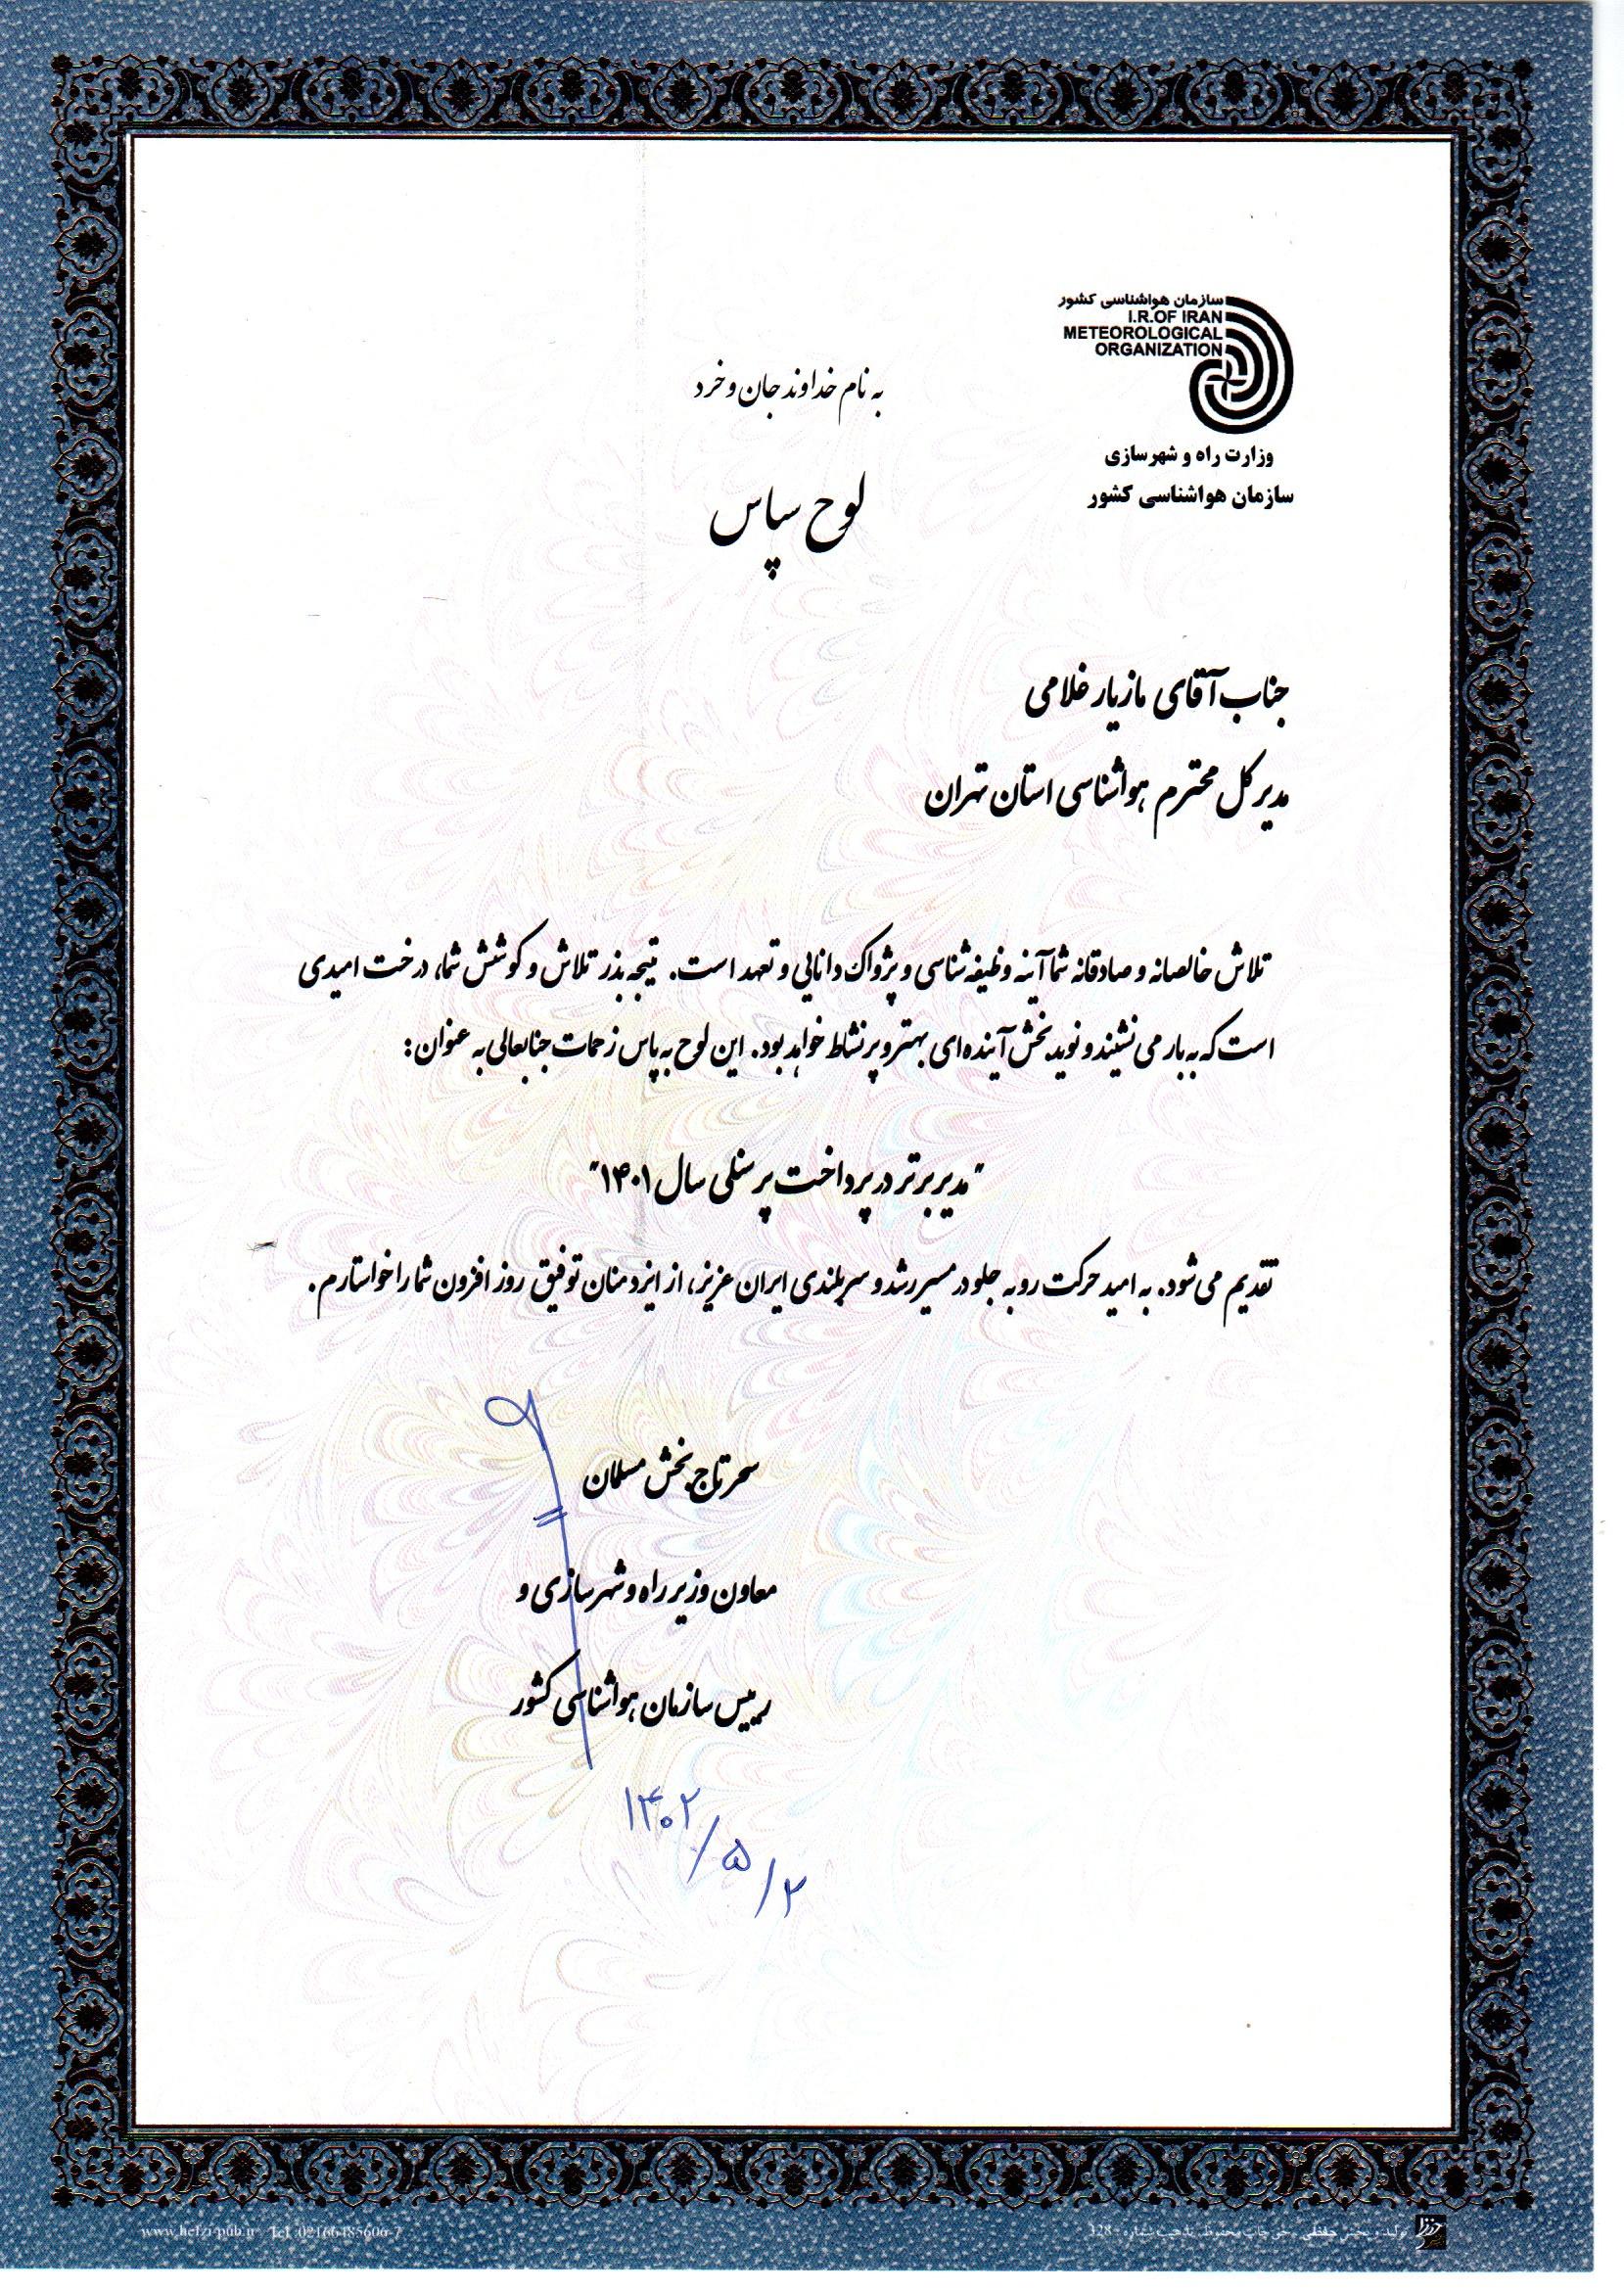 سازمان هواشناسی کشور
I.R.OF IRAN
METEOROLOGICAL
ORGANIZATION
وزارت راه و شهرسازی
سازمان هواشناسی کشور
به نام خداوند جان و خرد
لوح سپاس
جناب آقای مازیار غلامی
مدیر کل محترم هواشناسی استان تهران
تلاش خالصانه و صادقانه شما آینه وظیفه شناسی و پژواک دانایی و تعهد است. نتیجه بذر تلاش و کوشش شما، درخت امیدی
است که به بار می نشیند و نوید بخش آینده ای بهتر و پر نشاط خواهد بود. این لوح به پاس زحمات جنابعالی به عنوان:
"مدیر برتر در پرداخت پرسنلی سال ۱۴۰۱"
تقدیم می شود. به امید حرکت رو به جلو در مسیر رشد و سربلندی ایران عزیز، از ایزد منان توفیق روز افزون شما را خواستارم.
سحر تاج بخش مسلمان
معاون وزیر راه و شهرسازی و
رییس سازمان هواشناسی کشور
۱۴۰۲/۵/۲
www.hefzi-pub.ir Tel:02166485606-7